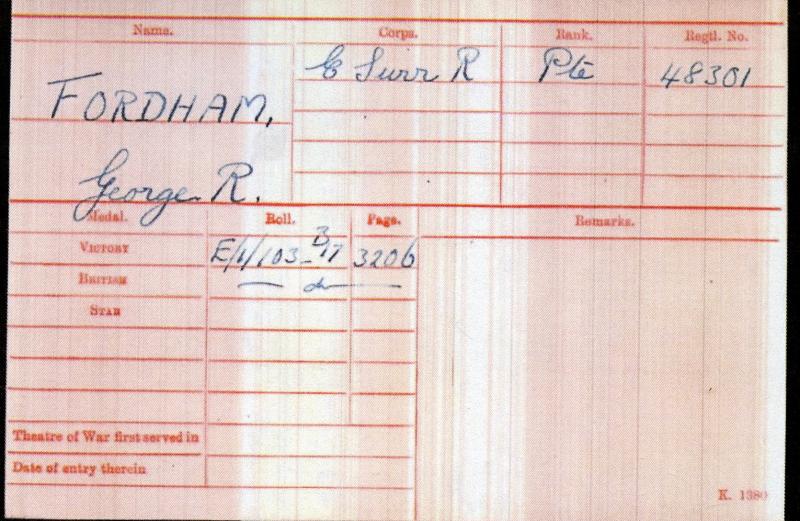 Name. Corps. Rank. Regtl. No.
E Surr R Pte 48301
FORDHAM,
George R.
Medal. Roll. Page. Remarks.
VICTORY E/1/103 B17 3206
BRITISH — do —
STAR
Theatre of War first served in
Date of entry therein
K. 1380